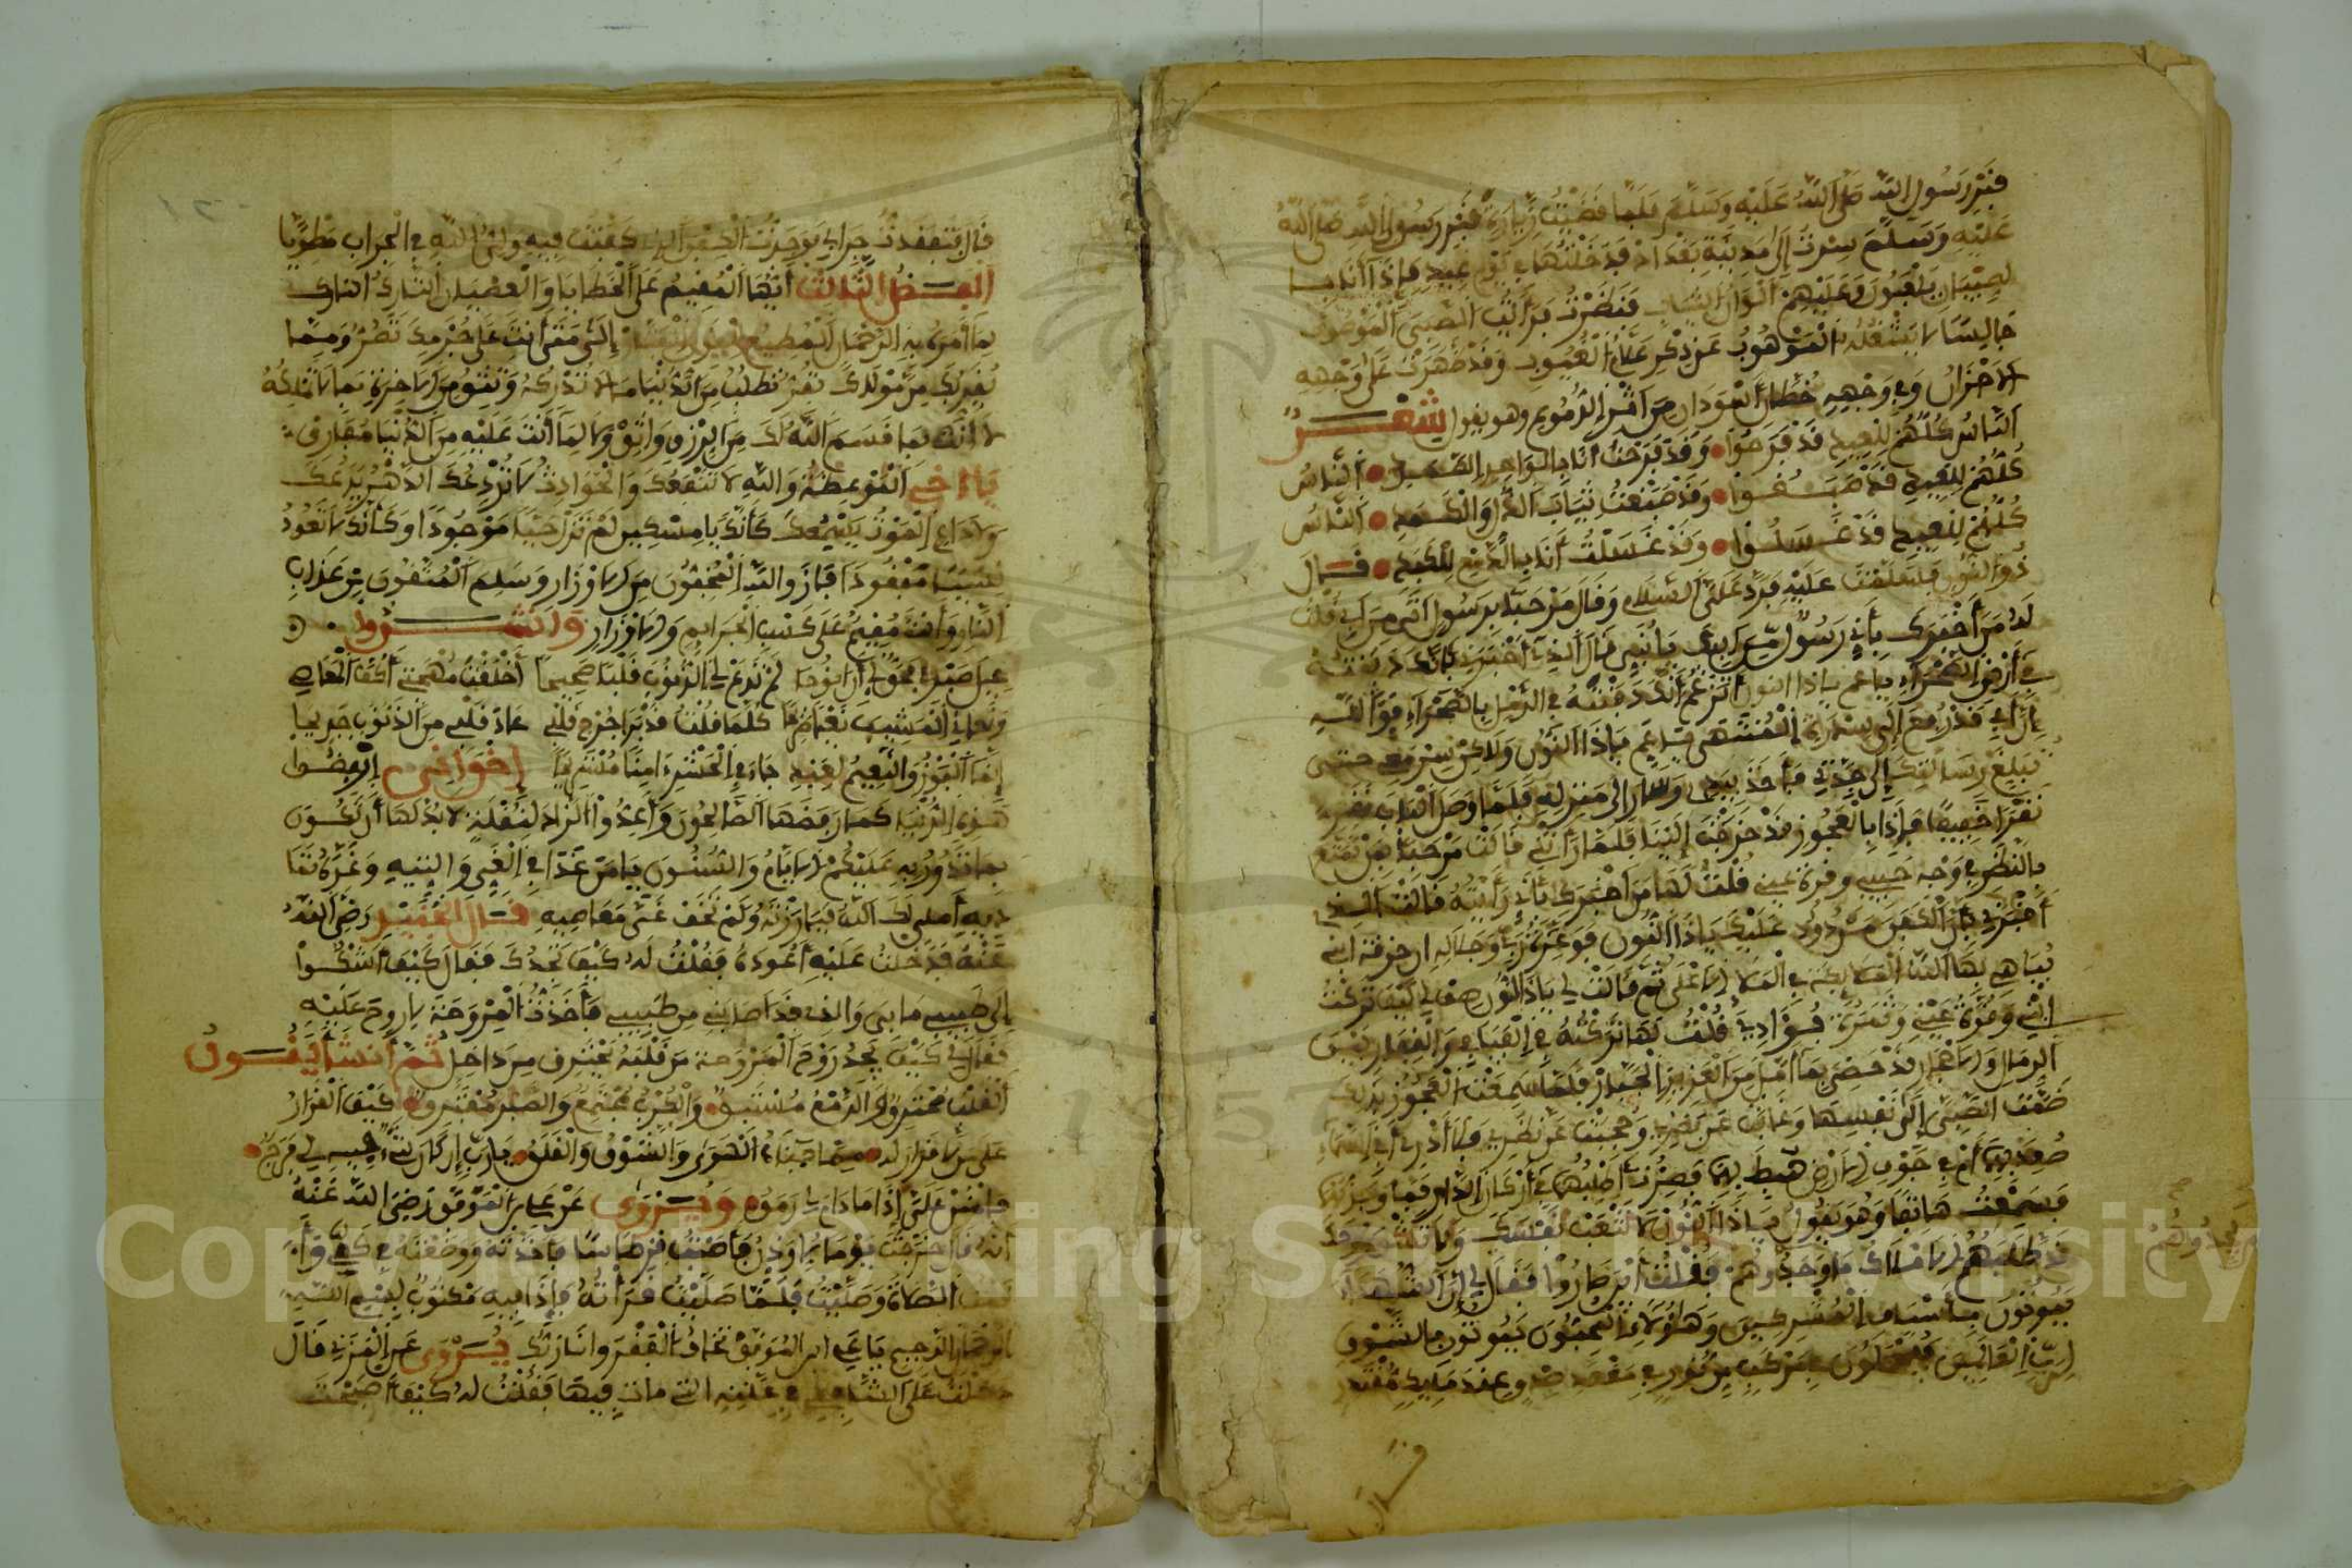 قبر رسول الله صلى الله عليه وسلم فلما قضيت زيارة قبر رسول الله صلى الله
عليه وسلم سرت إلى مدينة بغداد فدخلتها في يوم عيد فإذا أنا
لصبيان يلعبون وعليهم ألوان الثياب فنظرت فرأيت الصبي الموصوف
جالسا لا يشغله الموهوب عن ذكر علام الغيوب وقد ظهرت على وجهه
الأحزان وفي وجهه خطان أسودان من أثر الدموع وهو يقول شعر
الناس كلهم للعيد قد فرحوا وقد فرحت أنا بالواحد الصمد الناس
كلهم للعيد قد صبغوا وقد صبغت ثياب الذل والكمد الناس
كلهم للعيد قد غسلوا وقد غسلت أنا بالدمع للكبد قال
ذو النون فسلمت عليه فرد علي السلام وقال مرحبا برسول أتى من أبي فقلت
له من أخبرك بأني رسول من أبيك يا بني قال الذي أخبرني بأنك دفنته
في أرض الصحراء يا عم يا ذا النون أتزعم أنك دفنته في الرمل بالصحراء فو الله
إن أبي قد رفع إلى سدرة المنتهى يا عم يا ذا النون ولكن سر معي حتى
تبلغ رسالتك إلى جدتي فأخذ بيدي وسار إلى منزله فلما وصل الباب نقره
نقرا خفيفا فإذا بالعجوز قد خرجت إلينا فلما رأتني قالت مرحبا بمن تمتع
بالنظر في وجه حبيبي وقرة عيني فقلت لها من أخبرك بأني رأيته قالت الذي
أخبرني بأن الكفن مردود عليك يا ذا النون فو عزة ربي وجلاله إن خرقة ابني
يباهي بها الله الملائكة في الملا الأعلى ثم قالت لي يا ذا النون صف لي كيف تركت
ابني وقرة عيني وثمرة فؤادي قلت لها تركته في الفيافي والقفار بين
الرمال والأحجار قد حضي بما أمل من العزيز الجبار فلما سمعت العجوز بذلك
ضمت الصبي إلى نفسها وغابت عن نظري وحجبت عن نظري فلا أدري أفي السماء
صعد بهما أم في جوف الأرض هبط بهما فصرت أطلبهما في أركان الدار فما وجدتهما
فسمعت هاتفا وهو يقول يا ذا النون لا تتعب نفسك ولا فقد
قد طلبتهم الأملاك ما وجدوهم فقلت أين صاروا فقال لي إن الشهداء
يموتون بأسياف المشركين وهؤلاء المحبون يموتون بالشوق
إلى رب العالمين فيحملون في مركب من نور في مقعد صدق عند مليك مقتدر
يجدوهم
قال
قال فتفقدت جرابي فوجدت الكفن الذي كفنت فيه ولي الله في الجراب مطويا
الفصل الثالث أيها المقيم على الخطايا والعصيان التارك
بما أمره به الرحمان المطيع إلى متى أنت على جرمك تصر ومما
يقربك من مولاك تفر تطلب من الدنيا ما لا تدركه وتتقي من الآخرة بما لا تملكه
لا أنت بما قسم الله لك من الرزق واثق ولا لما أنت عليه من الدنيا مفارق
يا أخي الموعظة والله لا تنفعك والحوادث لا تردعك لا الدهر يدعك
ولا داعي الموت يسمعك كأنك يا مسكين لم تزل حيا موجودا وكأنك لا تعود
نسيا مفقودا فاز والله المخفون من الأوزار وسلم المتقون من عذاب
النار وأنت مقيم على كسب الجرائم والأوزار وأنشدوا
عيل صبري وحق لي أن أنوحا لم تدع لي الذنوب قلبا صحيحا أخلقت مهجتي أكف المعاصي
ونعاني المشيب نعيا صريحا كلما قلت قد برا جرح قلبي عاد قلبي من الذنوب جريحا
إنما الفوز والنعيم لعبد جاء في الحشر آمنا مستريحا إخواني ارفضوا
هذه الدنيا كما رفضها الصالحون وأعدوا الزاد لنقلة لا بد لها أن تكون
بما تدور به عليكم الأيام والسنون يا من غدا في الغي والتيه وغره
أملى لك الله فبارزته ولم تخف غب معاصيه قال الجنيد رضي الله
عنه فدخلت عليه أعوده فقلت له كيف تجدك فقال كيف أشكوا
إلى طبيبي ما بي والذي قد أصابني من طبيبي فأخذت المروحة لأروح عليه
فقال لي كيف يجد روح المروحة من قلبه يحترق من داخل ثم أنشأ يقول
القلب محترق والدمع مستبق والكرب مجتمع والصبر مفترق كيف القرار
على من لا قرار له مما جناه الهوى والشوق والقلق يا رب إن كان شيء فيه لي فرج
فامنن علي إذا ما دام لي رمق ويروى عن علي بن الموفق رضي الله عنه
أنه قال خرجت يوما لأوذن فأصبت قرطاسا فأخذته ووضعته في كمي
الصلاة وصليت فلما صليت قرأته فإذا فيه مكتوب بسم الله
الرحمان الرحيم يا علي ابن الموفق تخاف الفقر وأنا ربك ويروى عن المزني قال
دخلت على الشافعي في علته التي مات فيها فقلت له كيف أصبحت
Copyright © King Saud University
1957